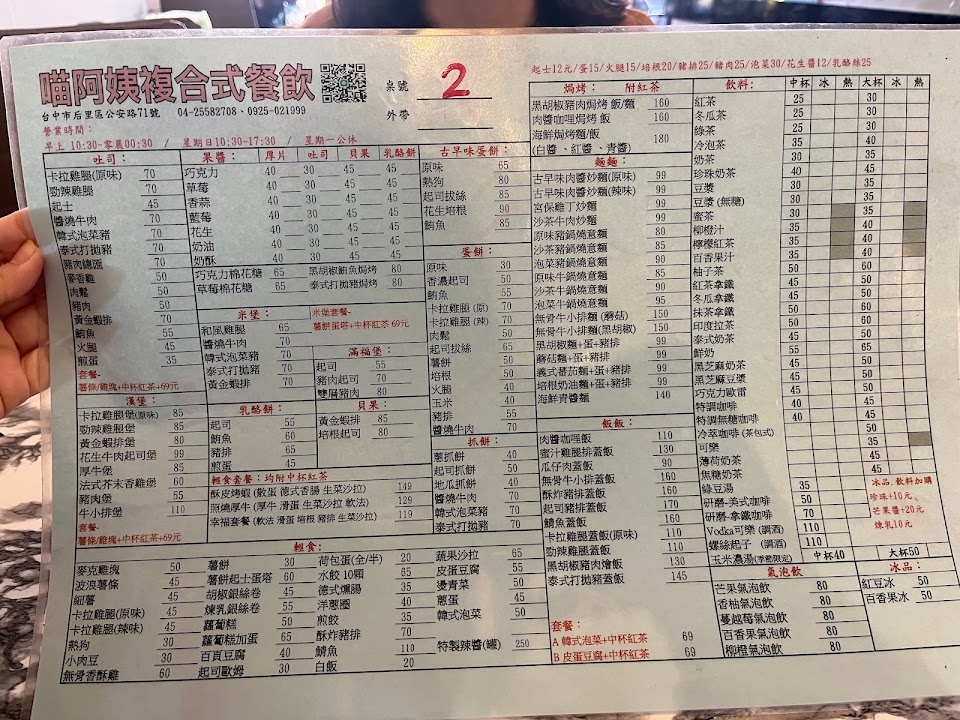 喵阿姨複合式餐飲
桌號 2
外帶
台中市后里區公安路71號 04-25582708、0925-021999
營業時間：
早上 10:30-零晨00:30 / 星期日10:30-17:30 / 星期一公休
起士12元/蛋15/火腿15/培根20/豬排25/豬肉25/泡菜30/花生醬12/乳酪絲25
吐司：
卡拉雞腿(原味) 70
勁辣雞腿 70
起士 45
醬燒牛肉 70
韓式泡菜豬 70
泰式打拋豬 70
豬肉總匯 70
麥香雞
肉鬆
豬肉
黃金蝦排
鮪魚 55
火腿 45
煎蛋 35
套餐-
薯條/雞塊+中杯紅茶+69元
果醬： 厚片 吐司 貝果 乳酪餅
巧克力 40 30 45 45
草莓 40 30 45 45
香蒜 40 30 45 45
藍莓 40 30 45 45
花生 40 30 45 45
奶油 40 30 45 45
奶酥 40 30 45 45
巧克力棉花糖 65 黑胡椒鮪魚焗烤 80
草莓棉花糖 65 泰式打拋豬焗烤 80
米堡：
米堡套餐-
薯餅蛋塔+中杯紅茶 69元
和風雞腿 65
醬燒牛肉 70
韓式泡菜豬 70
泰式打拋豬 70
黃金蝦排 70
滿福堡：
起司 55
豬肉起司 70
雙層豬肉 80
漢堡：
卡拉雞腿堡(原味) 85
勁辣雞腿堡 85
黃金蝦排堡 80
花生牛肉起司堡 99
厚牛堡 85
法式芥末香雞堡 60
豬肉堡 55
牛小排堡 110
套餐-
薯條/雞塊+中杯紅茶+69元
乳酪餅：
起司 55
鮪魚 60
豬排 65
煎蛋 45
貝果：
黃金蝦排 85
培根起司 80
輕食套餐：均附中杯紅茶
酥皮烤蝦 (散蛋 德式香腸 生菜沙拉) 149
照燒厚牛 (厚牛 滑蛋 生菜沙拉 軟法) 129
幸福套餐 (軟法 滑蛋 培根 豬排 生菜沙拉) 119
古早味蛋餅：
原味 65
熱狗 80
起司拔絲 85
花生培根 90
鮪魚 85
蛋餅：
原味 30
香濃起司 50
鮪魚 55
卡拉雞腿 (原) 70
卡拉雞腿 (辣) 70
肉鬆 50
起司拔絲 65
薯餅 50
培根 50
火腿 40
玉米 40
豬排 55
醬燒牛肉 70
抓餅：
蔥抓餅 40
起司抓餅 50
地瓜抓餅 40
醬燒牛肉 70
韓式泡菜豬 70
泰式打拋豬 70
輕食：
麥克雞塊 50
波浪薯條 45
細薯 45
卡拉雞腿(原味) 45
卡拉雞腿(辣味) 45
熱狗 30
小肉豆 30
無骨香酥雞 60
薯餅 30
薯餅起士蛋塔 60
胡椒銀絲卷 45
煉乳銀絲卷 55
蘿蔔糕 50
蘿蔔糕加蛋 65
百頁豆腐 40
起司歐姆 30
荷包蛋(全/半) 20
水餃 10顆 65
德式燻腸 35
洋蔥圈 40
煎餃 35
酥炸豬排 70
鯖魚 110
白飯 20
蔬果沙拉 65
皮蛋豆腐 55
燙青菜 50
蔥蛋 45
韓式泡菜 50
特製辣醬(罐) 250
焗烤： 附紅茶
黑胡椒豬肉焗烤 飯/麵 160
肉醬咖哩焗烤 飯 160
海鮮焗烤麵/飯 180
(白醬、紅醬、青醬)
麵麵：
古早味肉醬炒麵(原味) 99
古早味肉醬炒麵(辣味) 99
宮保雞丁炒麵 99
沙茶牛肉炒麵 99
原味豬鍋燒意麵 85
沙茶豬鍋燒意麵 80
泡菜豬鍋燒意麵 90
原味牛鍋燒意麵 90
沙茶牛鍋燒意麵 90
泡菜牛鍋燒意麵 95
無骨牛小排麵 (蘑菇) 150
無骨牛小排麵(黑胡椒) 150
黑胡椒麵+蛋+豬排 99
蘑菇麵+蛋+豬排 99
義式蕃茄麵+蛋+豬排 99
培根奶油麵+蛋+豬排 99
海鮮青醬麵 140
飯飯：
肉醬咖哩飯 110
蜜汁雞腿排蓋飯 130
瓜仔肉蓋飯 90
無骨牛小排蓋飯
酥炸豬排蓋飯 160
起司豬排蓋飯
鯖魚蓋飯 160
卡拉雞腿蓋飯(原味) 110
勁辣雞腿蓋飯 110
黑胡椒豬肉燴飯 130
泰式打拋豬蓋飯 145
套餐：
A 韓式泡菜+中杯紅茶 69
B 皮蛋豆腐+中杯紅茶 69
飲料： 中杯 冰 熱 大杯 冰 熱
紅茶 25 30
冬瓜茶 25 30
綠茶 25 30
冷泡茶
奶茶
珍珠奶茶
豆漿
豆漿 (無糖)
蜜茶
柳橙汁
檸檬紅茶
百香果汁
柚子茶
紅茶拿鐵
冬瓜拿鐵
抹茶拿鐵
印度拉茶
泰式奶茶
鮮奶
黑芝麻奶茶
黑芝麻豆漿
巧克力歐雷
特調咖啡
特調無糖咖啡
冷萃咖啡 (茶包式)
可樂
薄荷奶茶
焦糖奶茶
綠豆湯
研磨-美式咖啡
研磨-拿鐵咖啡
Vodka可樂 (調酒) 110
螺絲起子 (調酒) 110
玉米濃湯(季節限定) 中杯40 大杯50
冰品,飲料加購
珍珠+10元
芒果醬+20元
煉乳10元
氣泡飲
芒果氣泡飲 80
香柚氣泡飲 80
蔓越莓氣泡飲 80
百香果氣泡飲 80
柳橙氣泡飲 80
冰品：
紅豆冰 50
百香果冰 50